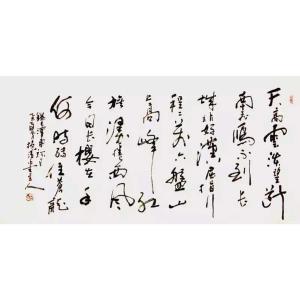 天高雲淡望斷
南飛雁不到長
城非好漢屈指行
程二萬六盤山
上高峰紅
旗漫捲西風
今日長櫻在手
何時縛住蒼龍